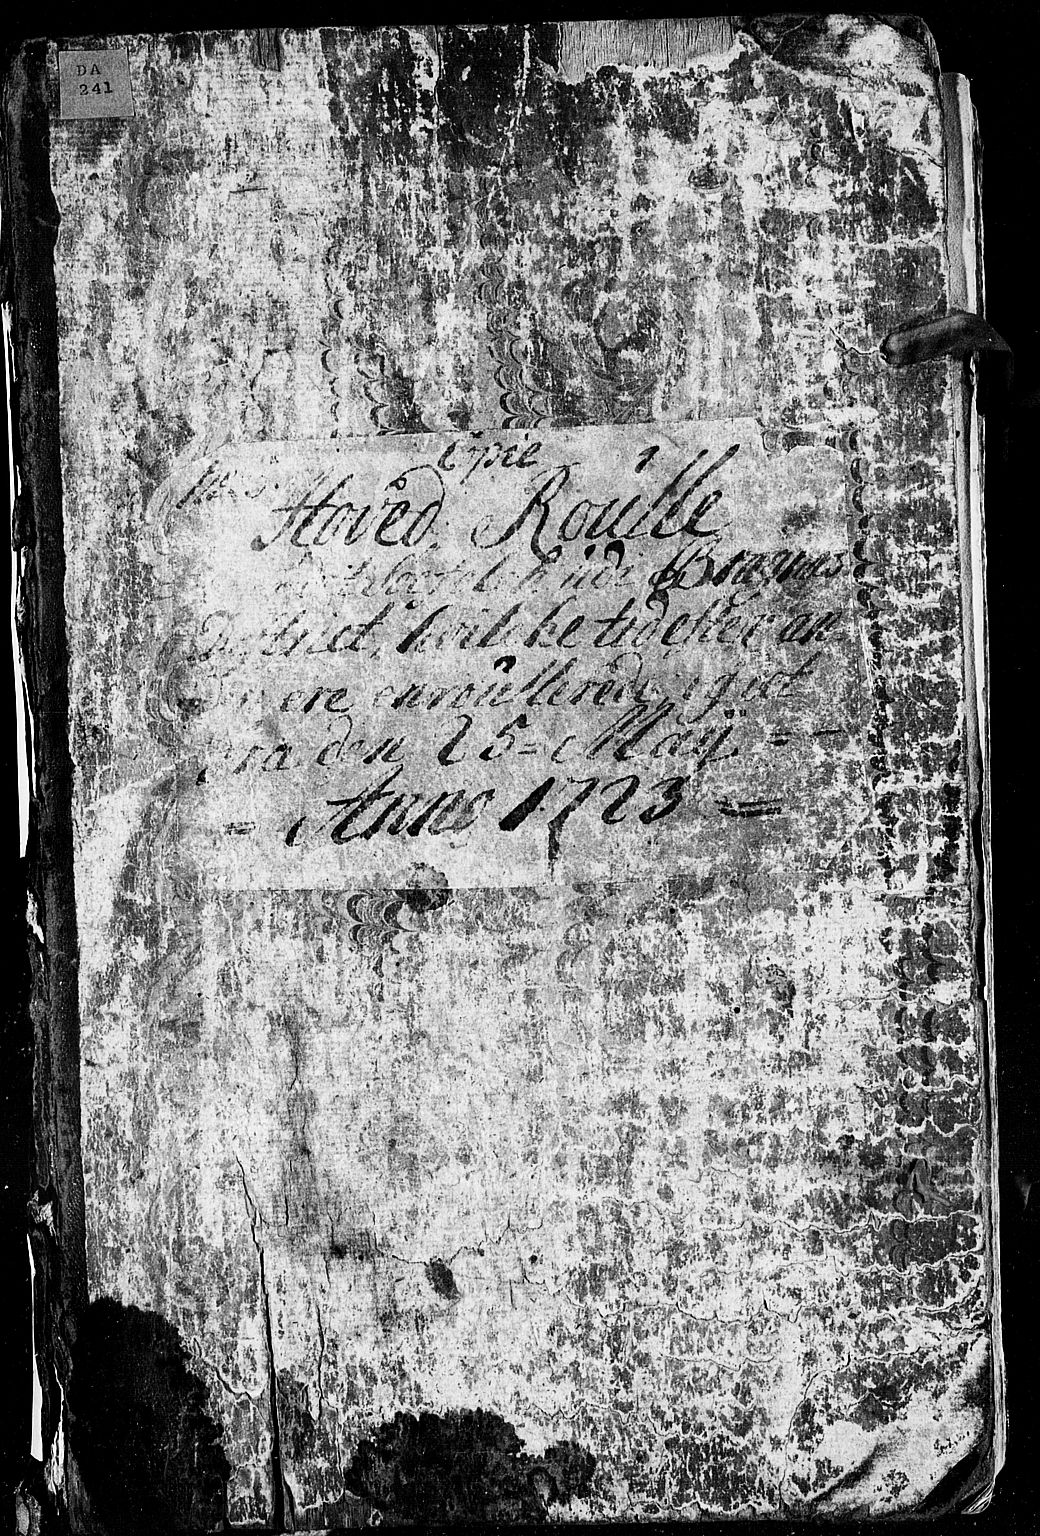 DA
241
Copie
Hoved Roulle
udi Bragnes
District, hvilke tid efter an
den ere enroullerede, giort
fra den 25 = Maÿ = -
= Anno 1723 =